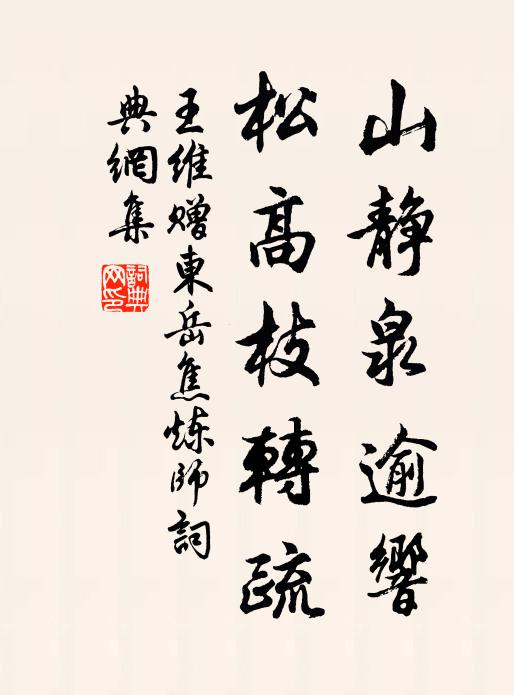 山靜泉逾響
松高枝轉疏
王維赠東岳焦炼師詞
典網集
詞典
网印